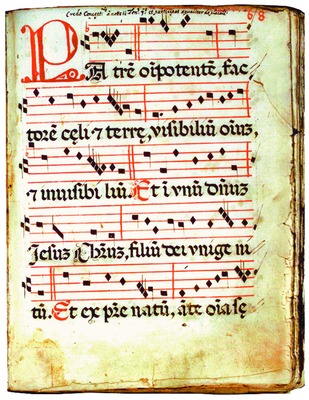 Credo
68
PA trē oīpotentē, fac
torē cęli ⁊ terrę, visibiliū oīuȝ,
⁊ inuisibi liū. Et ī vnū dn̄uȝ
Jesuȝ Chr̄uȝ, filiū dei vnige ni
tū. Et ex pr̄e natū, āte oīa sę